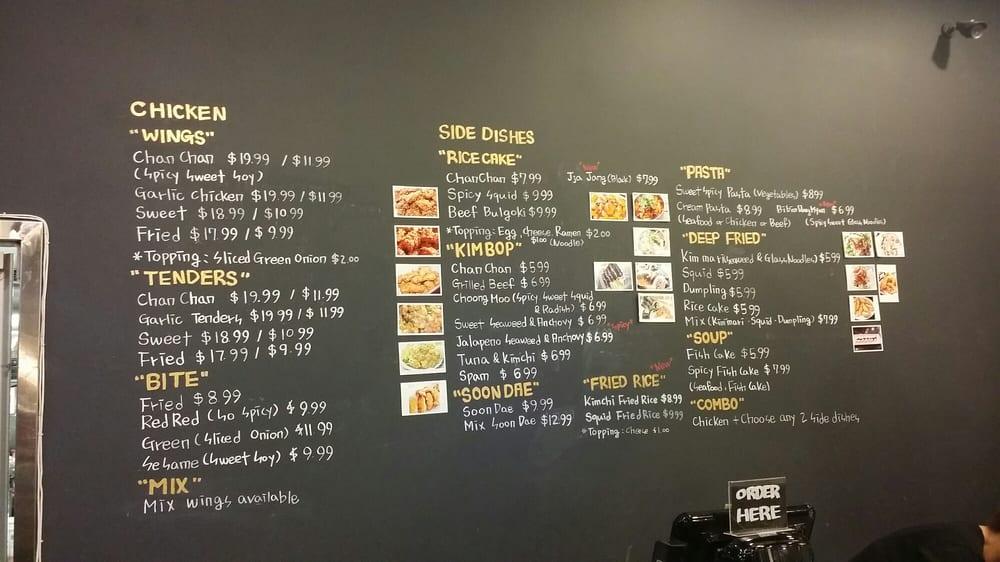 CHICKEN
"WINGS"
Chan Chan $19.99 / $11.99
(Spicy Sweet Soy)
Garlic Chicken $19.99 / $11.99
Sweet $18.99 / $10.99
Fried $17.99 / $9.99
*Topping: Sliced Green Onion $2.00
"TENDERS"
Chan Chan $19.99 / $11.99
Garlic Tenders $19.99 / $11.99
Sweet $18.99 / $10.99
Fried $17.99 / $9.99
"BITE"
Fried $8.99
Red Red (So Spicy) $9.99
Green (Sliced Onion) $11.99
Sesame (Sweet Soy) $9.99
"MIX"
Mix wings available
SIDE DISHES
"RICE CAKE"
Chan Chan $7.99
"New"
Jja Jang (Black) $7.99
Spicy Squid $9.99
Beef Bulgoki $9.99
*Topping: Egg, Cheese, Ramen $2.00
$1.00 (Noodle)
"KIMBOP"
Chan Chan $5.99
Grilled Beef $6.99
Choong Moo (Spicy, Sweet Squid
& Radish) $6.99
Sweet Seaweed & Anchovy $6.99
"Spicy"
Jalapeno Seaweed & Anchovy $6.99
Tuna & Kimchi $6.99
Spam $6.99
"SOON DAE"
Soon Dae $9.99
Mix Soon Dae $12.99
"New"
"FRIED RICE"
Kimchi Fried Rice $8.99
Squid Fried Rice $9.99
*Topping: Cheese $1.00
"PASTA"
Sweet Spicy Pasta (Vegetables) $8.99
Cream Pasta $8.99
"New"
$6.99
(Seafood or Chicken or Beef)
(Spicy Sweet Glass Noodles)
"DEEP FRIED"
Kim mari (Seaweed & Glass Noodles) $5.99
Squid $5.99
Dumpling $5.99
Rice Cake $5.99
Mix (Kimmari, Squid, Dumpling) $7.99
"SOUP"
Fish Cake $5.99
Spicy Fish Cake $7.99
(Seafood, Fish Cake)
"COMBO"
Chicken + Choose any 2 Side dishes
ORDER
HERE